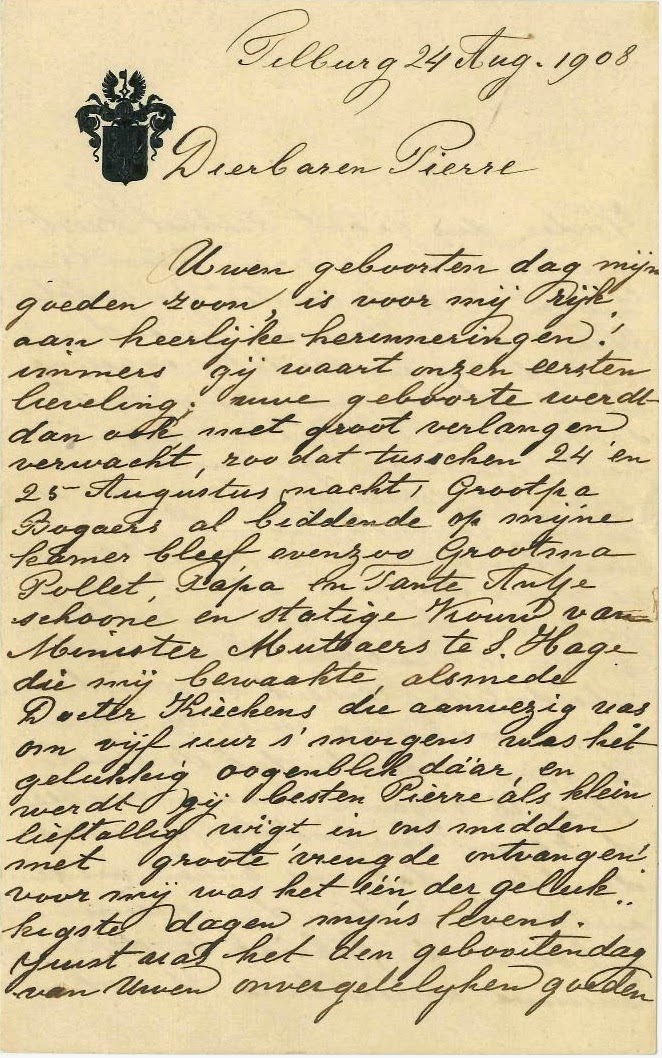 Tilburg 24 Aug. 1908
Dierbaren Pierre
Uwen geboorten dag mijn
goeden zoon, is voor mij rijk
aan heerlijke herinneringen!
immers gij waart onzen eersten
lieveling; uwe geboorte werdt
dan ook met groot verlangen
verwacht, zoo dat tusschen 24 en
25 Augustus nacht, Grootpa
Bogaers al biddende op mijne
kamer bleef evenzoo Grootma
Pollet, Papa en Tante Antje
schoone en statige Vrouw van
Minister Mutsaers te S. Hage
die mij bewaakte, alsmede
Docter Kieckens die aanwezig was
om vijf uur s'morgens was het
gelukkig oogenblik dáár, en
werdt gij besten Pierre als klein
lieftallig wigt in ons midden
met groote vreugde ontvangen!
voor mij was het één der geluk
kigste dagen mijns levens.
Juist was het den geboortendag
van Uwen onvergetelyken goeden